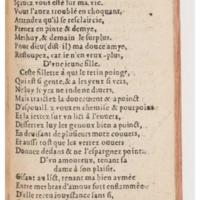 vous esté sur ma vie.
Vous l'auez troublé en choquant,
Attendez qu'il se resclaircie,
Prenez en pinte & demye,
Mèshuy, & demain le surplus.
Pour dieu (dist il) ma douce amye,
Restoupez, car ie n'en veux-plus,
D'vne ieune fille.
Ceste fillette à qui le tetin poingt,
Qui est si gente, & a les yeux si vers,
Ne luy soyez ne rudes ne diuers,
Mais traictez la doucement & à poinct
Despouillez vous en chemise & pourpoint
Et la iettez sur vn lict à l'enuers,
Desserrez luy les genoux bien à poinct,
En deuisant de plusieurs motz couuers,
Et aussi tost que les verrez ouuers
Donnez dedans & ne l'espargnez point.
D'vn amoureux, tenant sa
dame à son plaisir.
Gisant au lict, tenant ma bien aymée
Entre mes bras d'amour fort enflammée
D'aise rauy iouyssance sans si,